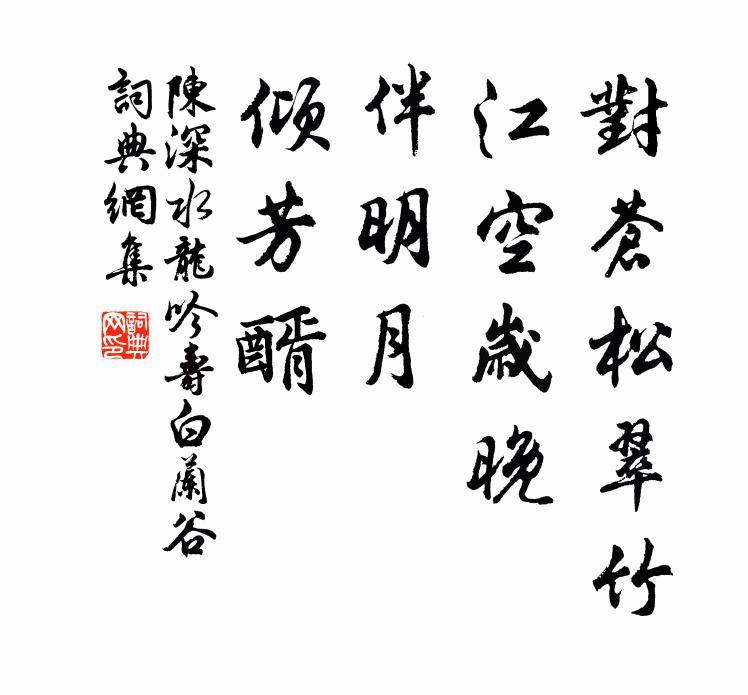 對蒼松翠竹
江空歲晚
伴明月
傾芳醑
陳深水龍吟壽白蘭谷
詞典網集
詞典網印